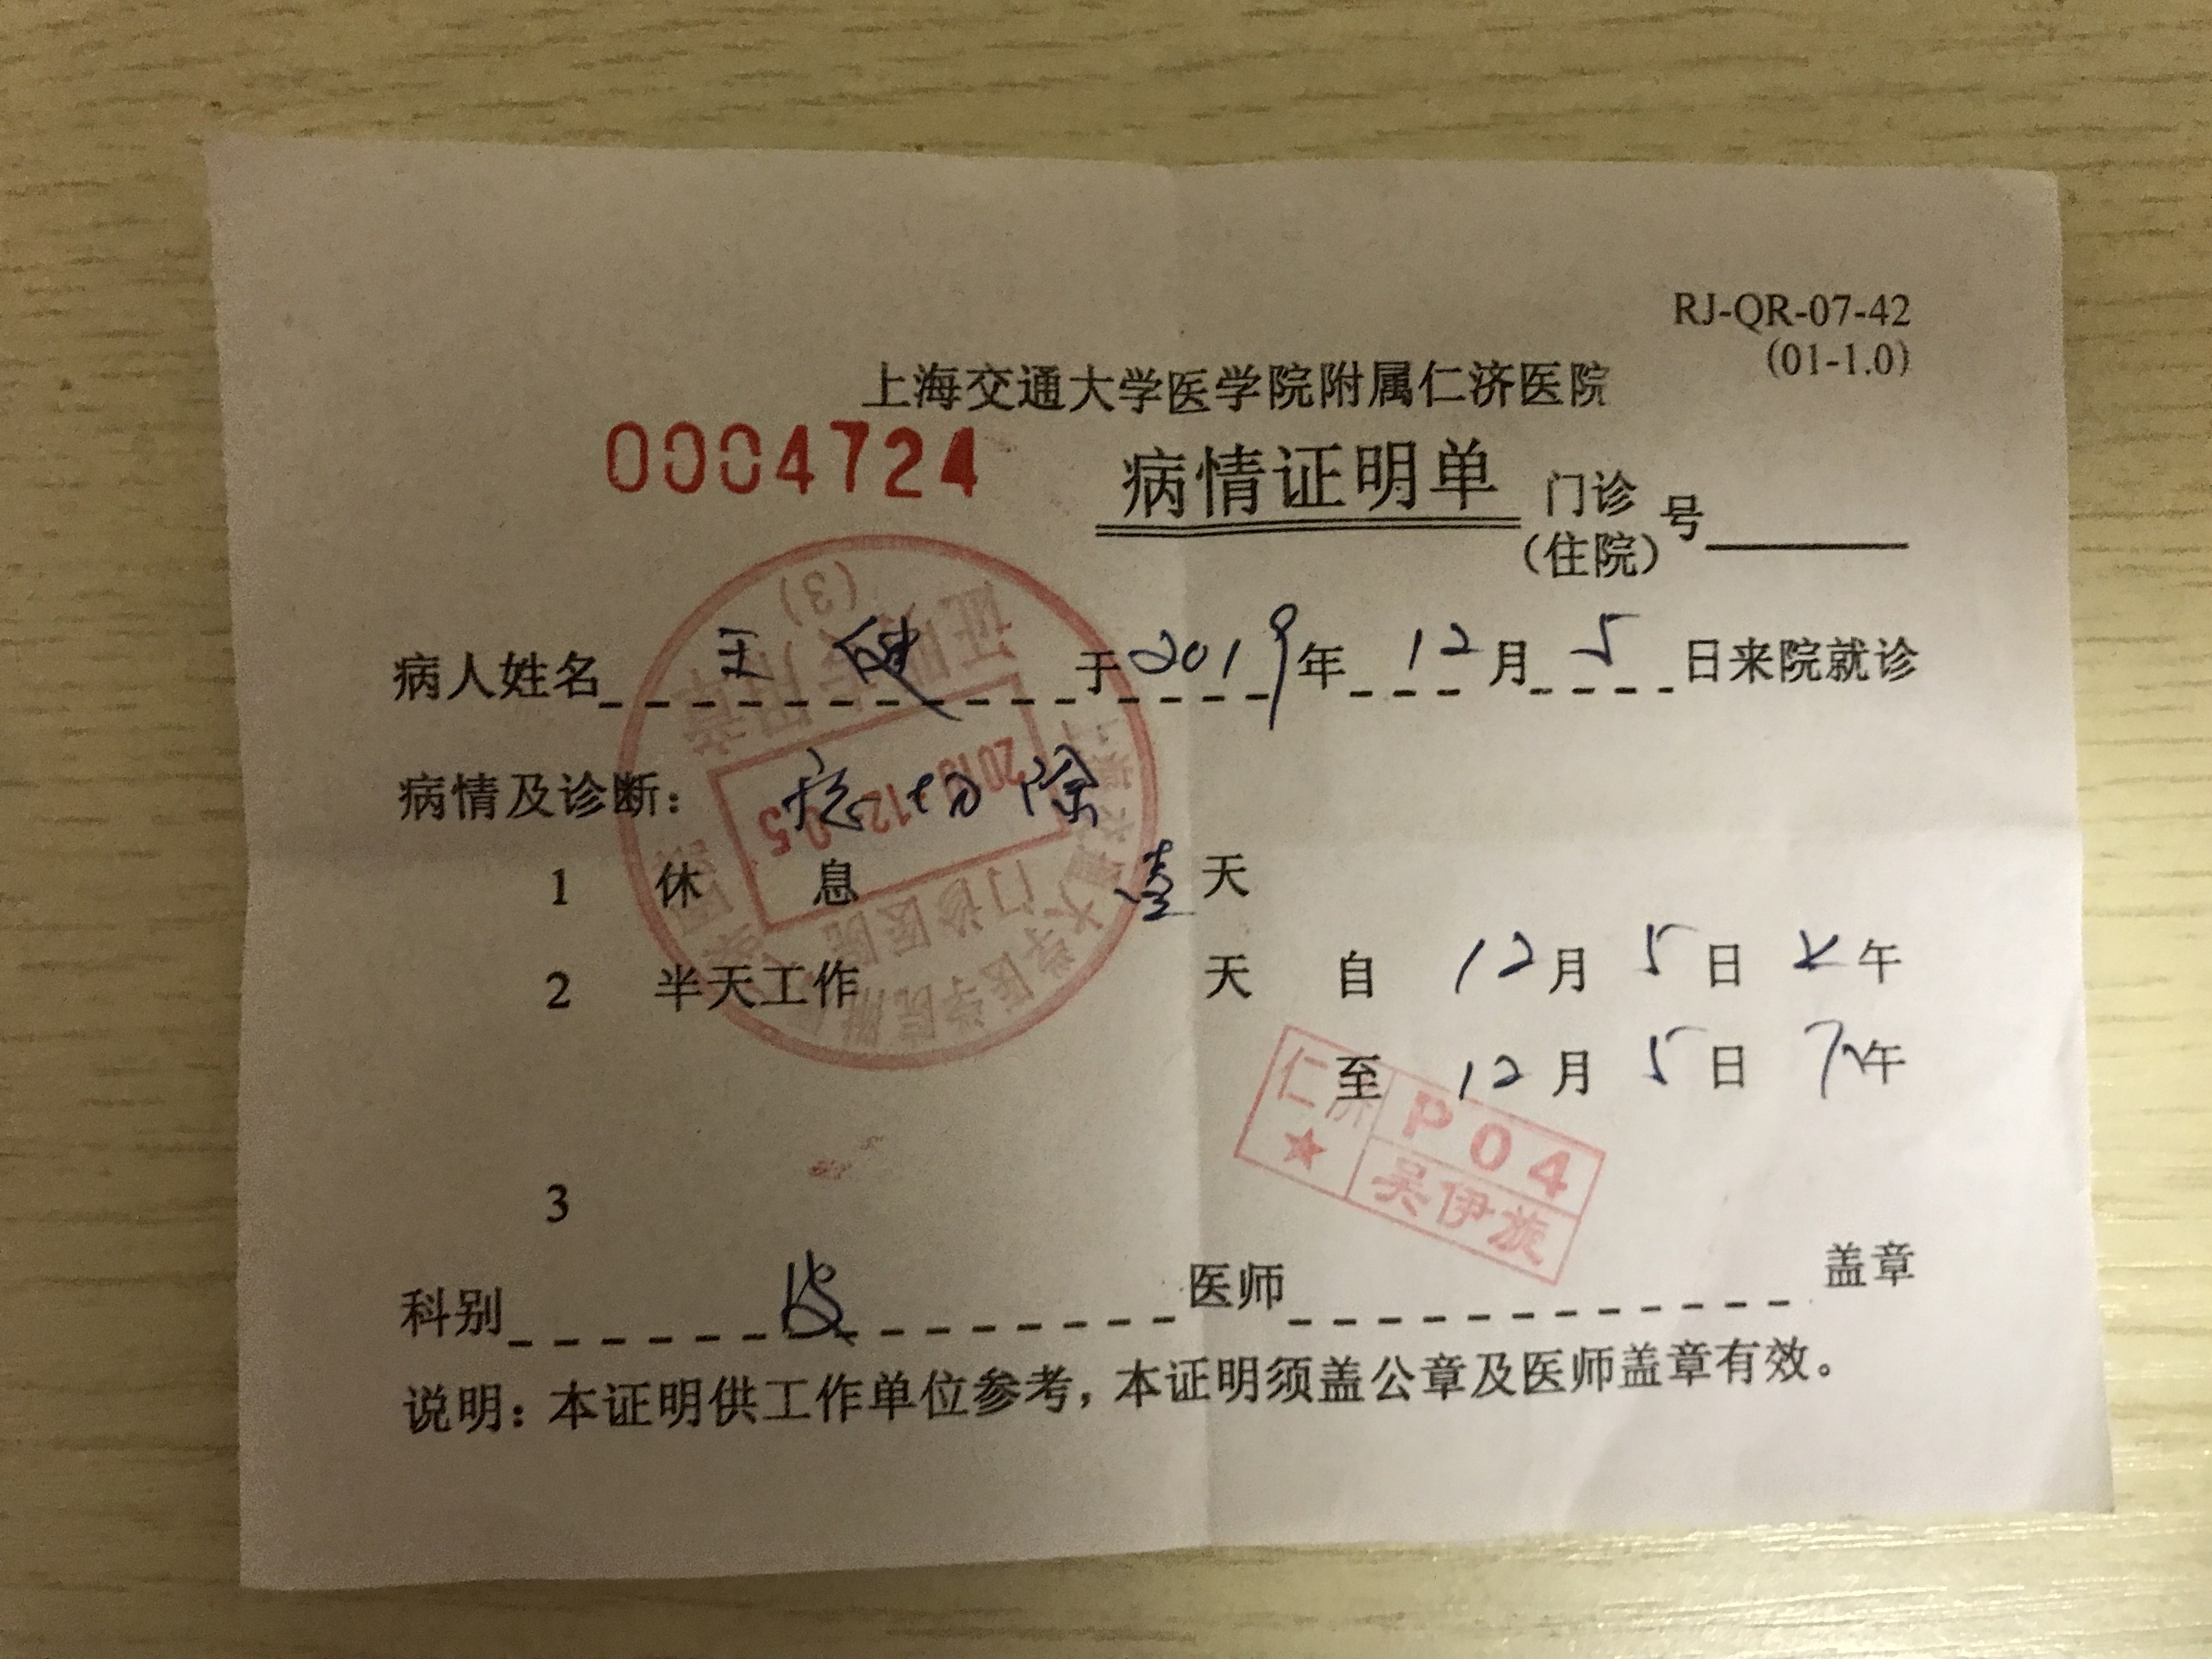 RJ-QR-07-42
(01-1.0)
上海交通大学医学院附属仁济医院
0004724 病情证明单 门诊(住院)号
病人姓名 王 于2019年12月5日来院就诊
病情及诊断:
1 休息 壹天
2 半天工作 天 自 12月5日上午
至 12月5日下午
3
科别 医师 盖章
说明:本证明供工作单位参考,本证明须盖公章及医师盖章有效。
上海交通大学医学院附属仁济医院门诊
证明专用章
(3)
仁济 P04